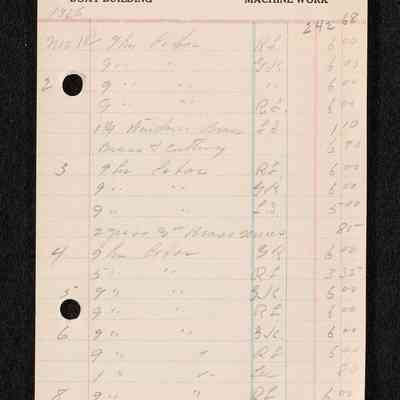 BOAT BUILDING MACHINE WORK
1926 242 68
9 hrs Labor RL 6 00
9 " " GK 6 00
2 9 " " " 6 00
9 " " RL 6 00
Brass 1 10
Brass & Cutting 5 70
3 9 hrs Labor RL 6 00
9 " " GK 6 00
9 " " 5 00
2 Brass 85
4 9 hrs Labor GK 6 00
5 " " RL 3 35
5 9 " " GK 6 00
9 " " RL 6 00
6 9 " " GK 6 00
9 " " RL 6 00
1 " " 80
8 9 " " RL 6 00